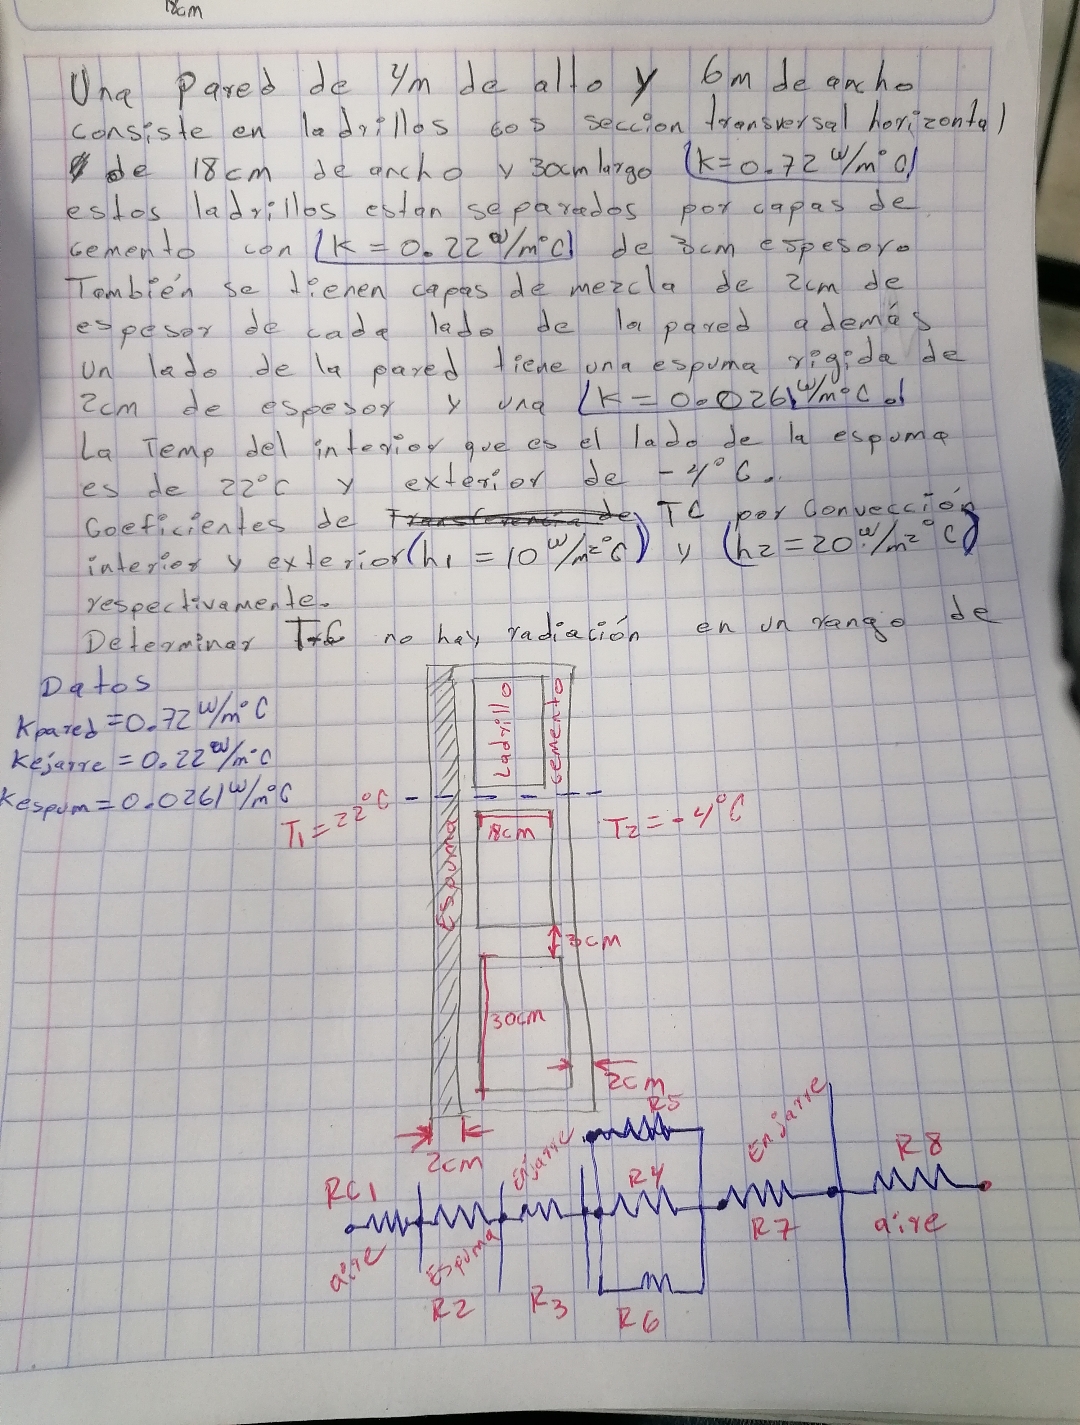 18cm
Una pared de 4m de alto y 6m de ancho
consiste en ladrillos cos seccion transversal horizontal
de 18cm de ancho y 30cm largo (k=0.72 w/m°C)
estos ladrillos estan separados por capas de
cemento con (K = 0.22 w/m°C) de 3cm espesor.
También se tienen capas de mezcla de 2cm de
espesor de cada lado de la pared además
un lado de la pared tiene una espuma rigida de
2cm de espesor y una (K = 0.0261 w/m°C.)
La Temp del interior que es el lado de la espuma
es de 22°C y exterior de -4°C.
Coeficientes de Transferencia de TC por Convección
interior y exterior (h1 = 10 w/m²°C) y (h2 = 20 w/m²°C)
respectivamente.
Determinar T.C no hay radiación en un rango de
Datos
Kpared = 0.72 w/m°C
Kejarre = 0.22 w/m°C
Kespum = 0.0261 w/m°C
T1 = 22°C
Ladrillo
cemento
Espuma
18cm
T2 = -4°C
3cm
30cm
2cm
2cm
RC1
aire
Espuma
R2
Enjarre
R3
R5
R4
R6
Enjarre
R7
R8
aire